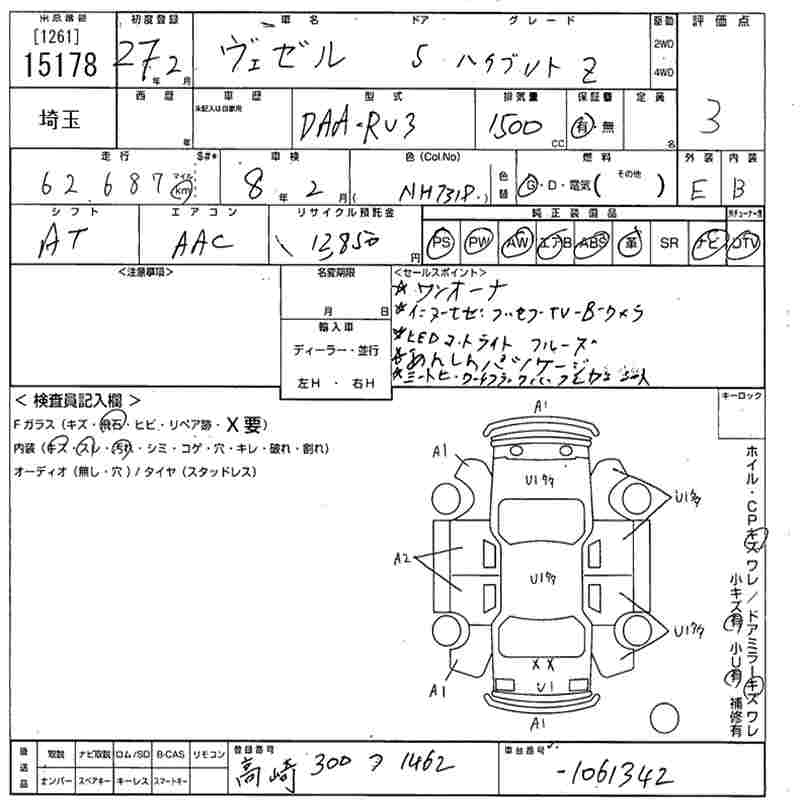 [1261]
15178
埼玉
初度登録
27年2月
車名
ヴェゼル
ドア
5
グレード
ハイブリット Z
駆動
2WD
4WD
評価点
3
西暦
年
車歴
未記入は自家用
型式
DAA-RU3
排気量
1500 CC
保証書
有・無
定員
名
走行
$#*
62,687 マイル km
車検
8年2月
色(Col.No)
(NH731P.)
色替
燃料
G・D・電気( その他 )
外装
E
内装
B
シフト
AT
エアコン
AAC
リサイクル預託金
12850円
純正装備品
PS PW AW エアB ABS 革 SR ナビ TV
<注意事項>
名変期限
月 日
輸入車
ディーラー・並行
左H ・ 右H
<セールスポイント>
☆ワンオーナ
TV-Bカメラ
LEDコートライト クルーズ
あんしんパッケージ
< 検査員記入欄 >
Fガラス(キズ・飛石・ヒビ・リペア跡・X要)
内装(キズ・スレ・汚れ・シミ・コゲ・穴・キレ・破れ・割れ)
オーディオ(無し・穴)/タイヤ(スタッドレス)
キーロック
A1
A1
U1タタ
U1タタ
A2
U1タタ
U1タタ
A1
XX
U1
A1
ホイル・CPキズ ワレ/ドアミラーキズ ワレ
小キズ有 小U有 補修有
後送品
取説 ナビ取説 ロム/SD B-CAS リモコン
ナンバー スペアキー キーレス スマートキー
登録番号
高崎 300 フ 1462
車台番号
-1061342